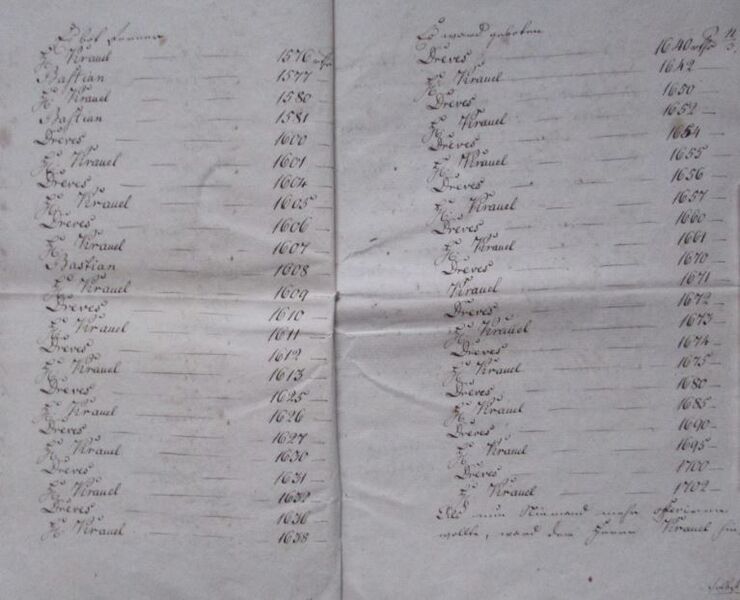 Es bot ferner
H. Krauel — — 1576 rthr
Bastian — — 1577 —
H. Krauel — — 1580 —
Bastian — — 1581 —
Dreves — — 1600 —
H. Krauel — — 1601 —
Dreves — — 1604 —
H. Krauel — — 1605 —
Dreves — — 1606 —
H. Krauel — — 1607 —
Bastian — — 1608 —
H. Krauel — — 1609 —
Dreves — — 1610 —
H. Krauel — — 1611 —
Dreves — — 1612 —
H. Krauel — — 1613 —
Dreves — — 1625 —
H. Krauel — — 1626 —
Dreves — — 1627 —
H. Krauel — — 1630 —
Dreves — — 1631 —
H. Krauel — — 1632 —
Dreves — — 1636 —
H. Krauel — — 1638 —
Es ward geboten
Dreves — — 1640 rthr
H. Krauel — — 1642 —
Dreves — — 1650 —
H. Krauel — — 1652 —
Dreves — — 1654 —
H. Krauel — — 1655 —
Dreves — — 1656 —
H. Krauel — — 1657 —
Dreves — — 1660 —
H. Krauel — — 1661 —
Dreves — — 1670 —
Krauel — — 1671 —
Dreves — — 1672 —
H. Krauel — — 1673 —
Dreves — — 1674 —
H. Krauel — — 1675 —
Dreves — — 1680 —
H. Krauel — — 1685 —
Dreves — — 1690 —
H. Krauel — — 1695 —
Dreves — — 1700 —
H. Krauel — — 1702 —
Als nun Niemand mehr offeriren
wollte, ward dem Herrn Krauel hin